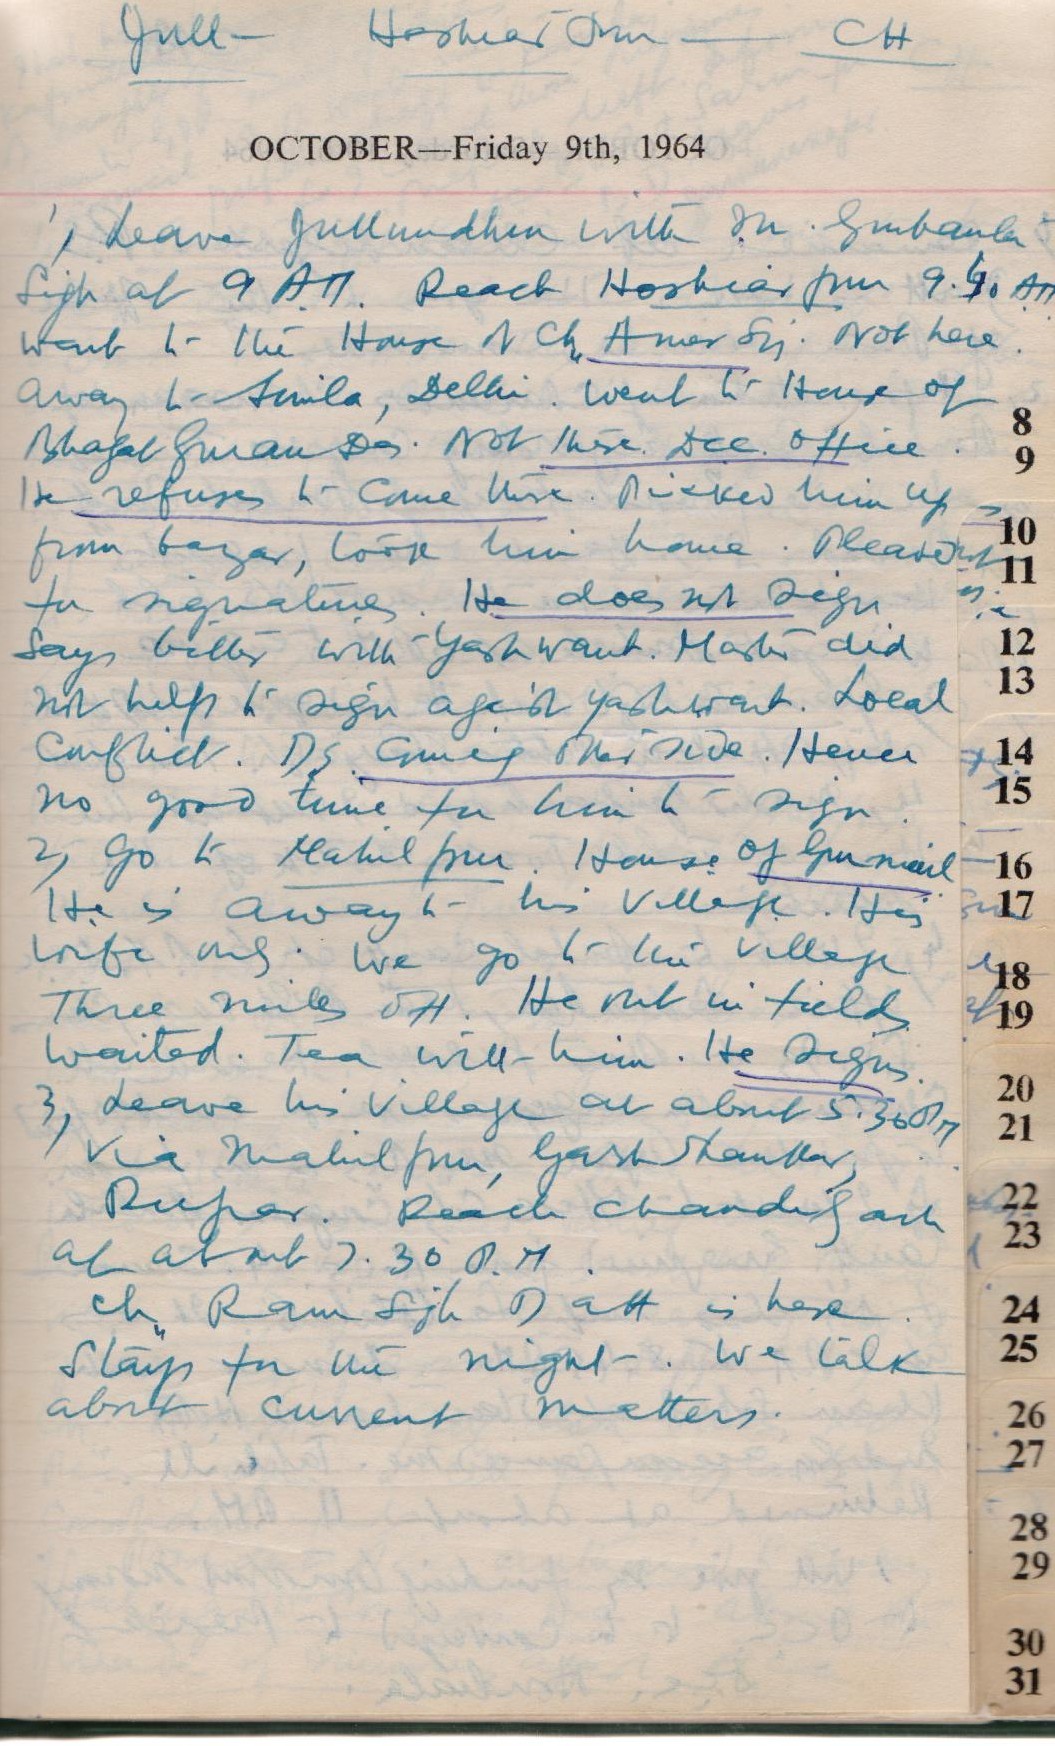 Jull - Hoshiar Pur - CH
OCTOBER—Friday 9th, 1964
1, Leave Jullundhur with Gurbanta
Sigh at 9 AM. Reach Hoshiarpur 9.40 AM
Went to the House of Ch. Amar Sij. Not here.
away to Simla, Delhi. Went to House of
Bhagat Guran Das. Not there. Dcc. office.
He refuses to come there. Picked him up
from bazar, took him home. Pleaded
for signatures. He does not sign
Says better with Yashwant. Master did
not help to sign against Yashwant. Local
Conflict. DS. Coming this side. Hence
no good time for him to sign.
2, Go to Mahilpur. House of Gurmail
He is away to his Village. His
wife only. We go to the village
Three miles off. He out in fields
Waited. Tea with him. He signs.
3, Leave his Village at about 5.30 PM
Via Mahilpur, Garh Shankar,
Rupar. Reach Chandigarh
at about 7.30 P.M.
Ch. Ram Sigh Datt is here.
Stays for the night. We talk
about current matters.
8
9
10
11
12
13
14
15
16
17
18
19
20
21
22
23
24
25
26
27
28
29
30
31